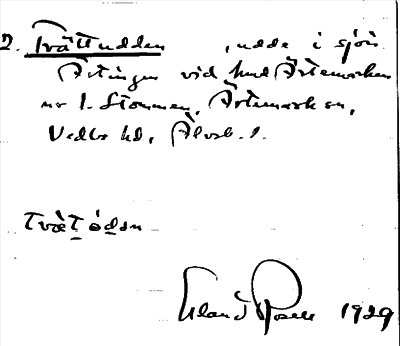 2. Tvättudden, udde i sjön
Ärtingen vid hmd Ärtemarken
nr 1. Stommen, Ärtemark sn,
Vedbo hd, Älvsb. l.
Tvät ódan
Erland Rosell 1929